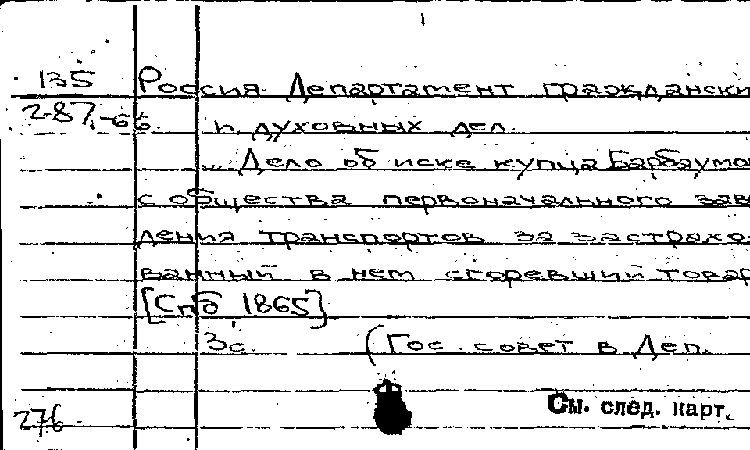 135
287-66
Россия. Департамент граждански
и духовных дел.
... Дело об иске купца Барбаумо
с общества первоначального заве
дения транспортов за застрахо-
ванный в нем сгоревший товар
[Спб, 1865]
3с. (Гос. совет в Деп.
См. след. карт.
276